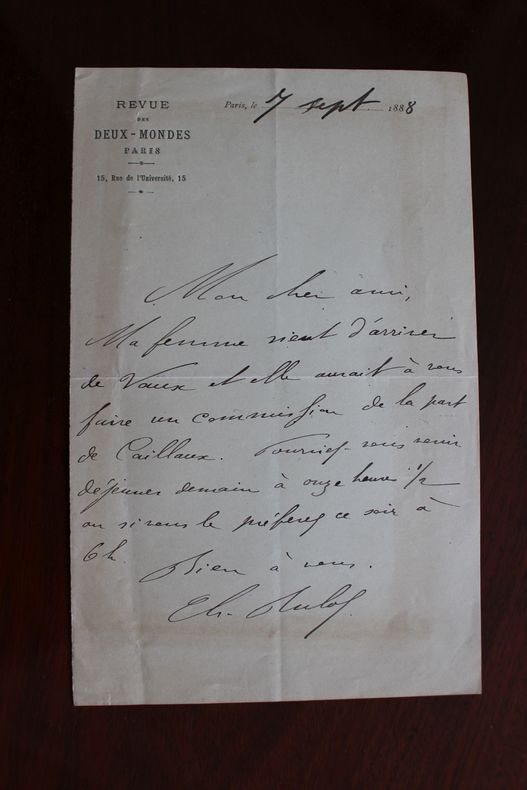 REVUE
DES
DEUX-MONDES
PARIS
15, Rue de l'Université, 15
Paris, le 7 sept 1888
Mon cher ami,
Ma femme vient d'arriver
de Vaux et elle aurait à vous
faire un commission de la part
de Caillaux. Pourriez-vous venir
déjeuner demain à onze heure 1/2
ou si vous le préférez ce soir à
6h.
Bien à vous.
Ch. Buloz